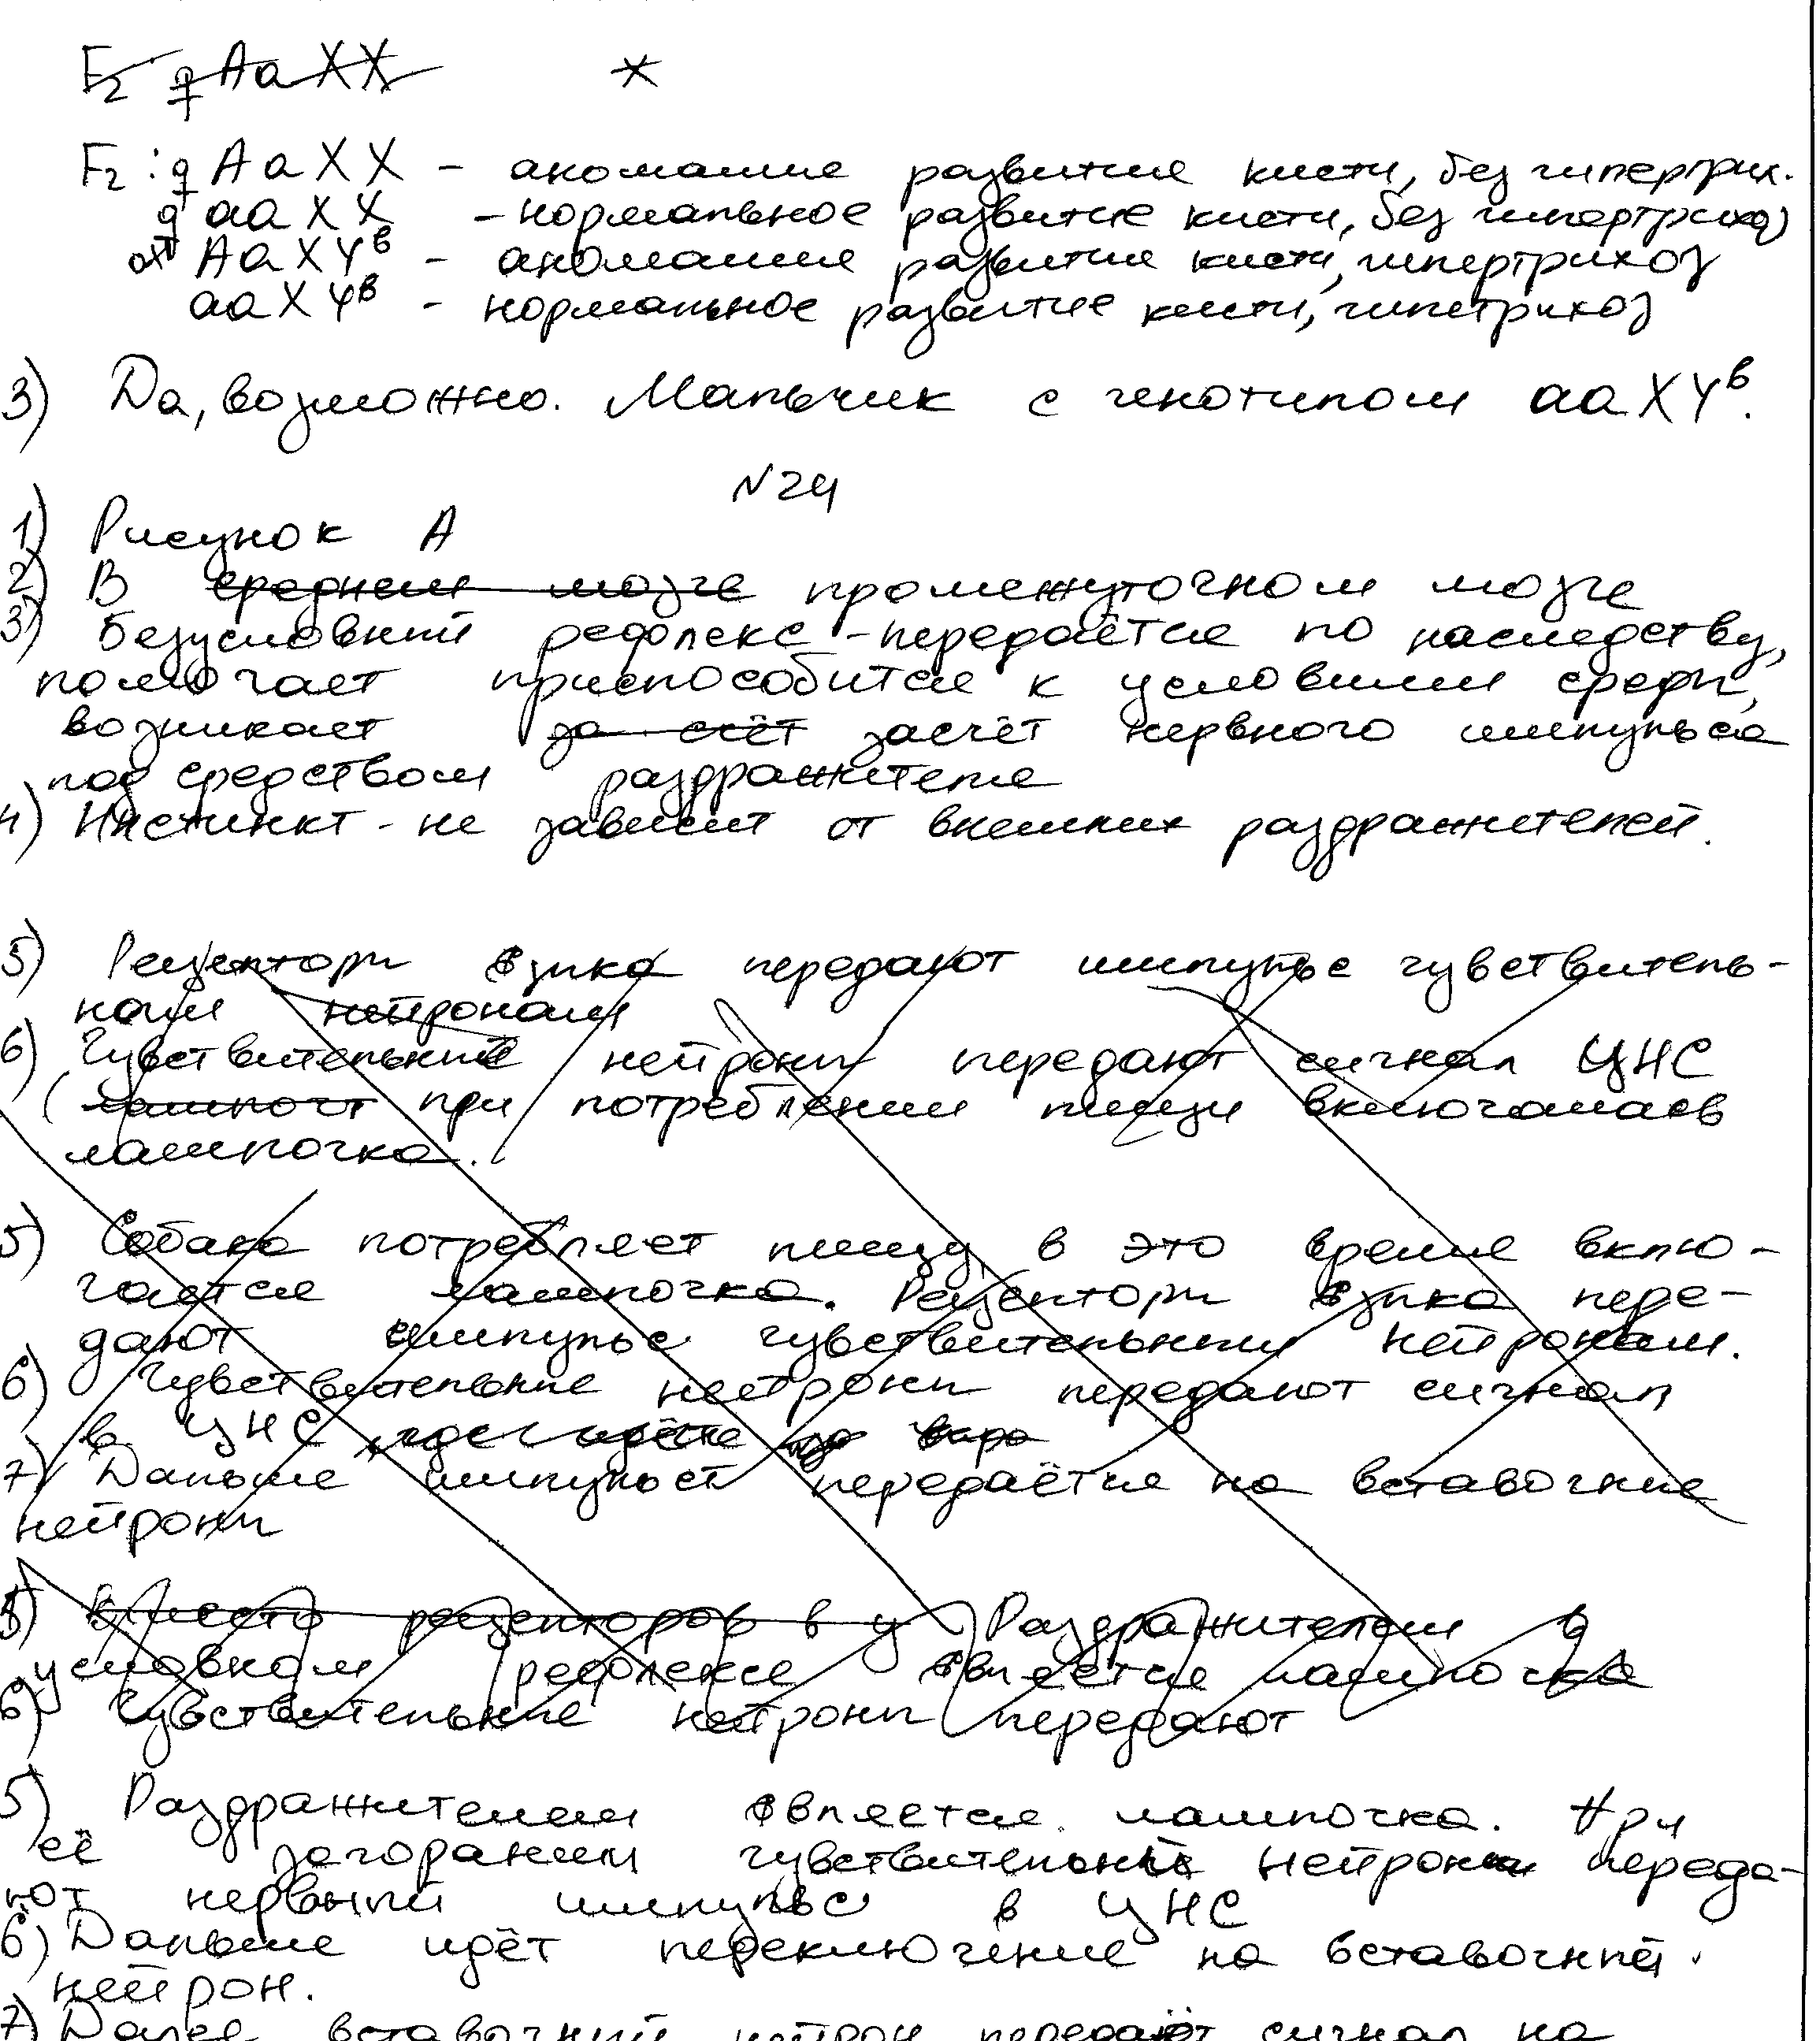 F₂ ♀ AaXX *
F₂: ♀ AaXX - аномалия развития кисти, без гипертрих.
♀ aaXX - нормальное развитие кисти, без гипертрихоз
♂ AaXYᵇ - аномалия развития кисти, гипертрихоз
aaXYᵇ - нормальное развитие кисти, гипетрихоз
3) Да, возможно. Мальчик с генотипом aaXYᵇ.
№24
1) Рисунок А
2) В среднем мозге промежуточном мозге
3) Безусловный рефлекс - передаётся по наследству,
помогает приспособится к условиям среды,
возникает за счёт засчёт нервного импульса
под средством раздражителя
4) Инстинкт - не зависит от внешних раздражителей.
5) Рецепторы языка передают импульс чувствитель-
ным нейронам
6) Чувствительный нейроны передают сигнал ЦНС
(лампочт при потреблении пищи включалась
лампочка.
5) Собака потребляет пищу, в это время вклю-
чается лампочка. Рецепторы языка пере-
дают импульс чувствительным нейронам.
6) Чувствительные нейроны передают сигнал
в ЦНС,
7) Дальше импульст передаётся на вставочные
нейроны
вместо рецепторов в у Раздражителем в
условном рефлексе является лампочка
6) Чувствительные нейроны передают
5) Раздражителем является лампочка. При
её загорании чувствительный нейроны переда-
ют нервный импульс в ЦНС
6) Дальше идёт переключение на вставочный
нейрон.
7) Далее вставочный нейрон передаёт сигнал на